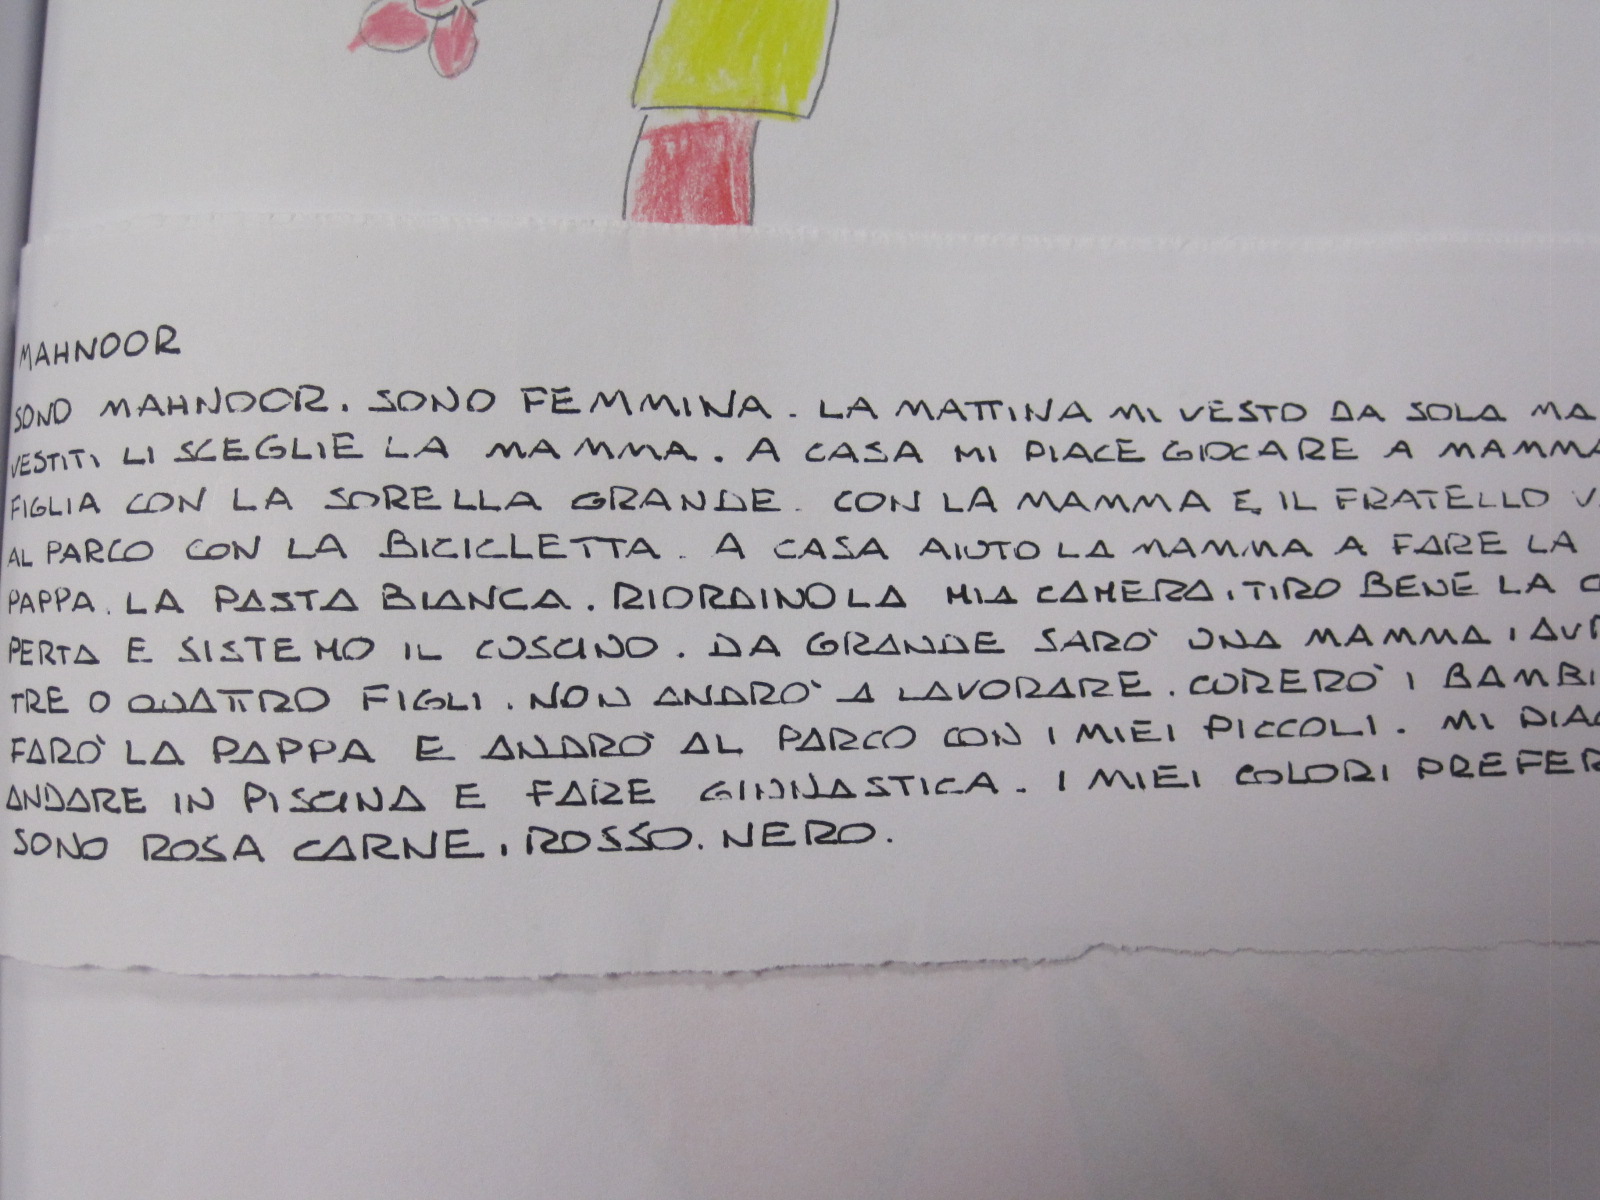 MAHNOOR
SONO MAHNOOR. SONO FEMMINA. LA MATTINA MI VESTO DA SOLA MA
VESTITI LI SCEGLIE LA MAMMA. A CASA MI PIACE GIOCARE A MAMMA
FIGLIA CON LA SORELLA GRANDE. CON LA MAMMA E IL FRATELLO
AL PARCO CON LA BICICLETTA. A CASA AIUTO LA MAMMA A FARE LA
PAPPA. LA PASTA BIANCA. RIORDINO LA MIA CAMERA, TIRO BENE LA
PERTA E SISTEMO IL CUSCINO. DA GRANDE SARÒ UNA MAMMA, AVR
TRE O QUATTRO FIGLI. NON ANDRÒ A LAVORARE. CURERÒ I BAMBI
FARÒ LA PAPPA E ANDRÒ AL PARCO CON I MIEI PICCOLI. MI PIAC
ANDARE IN PISCINA E FARE GINNASTICA. I MIEI COLORI PREFER
SONO ROSA CARNE, ROSSO. NERO.